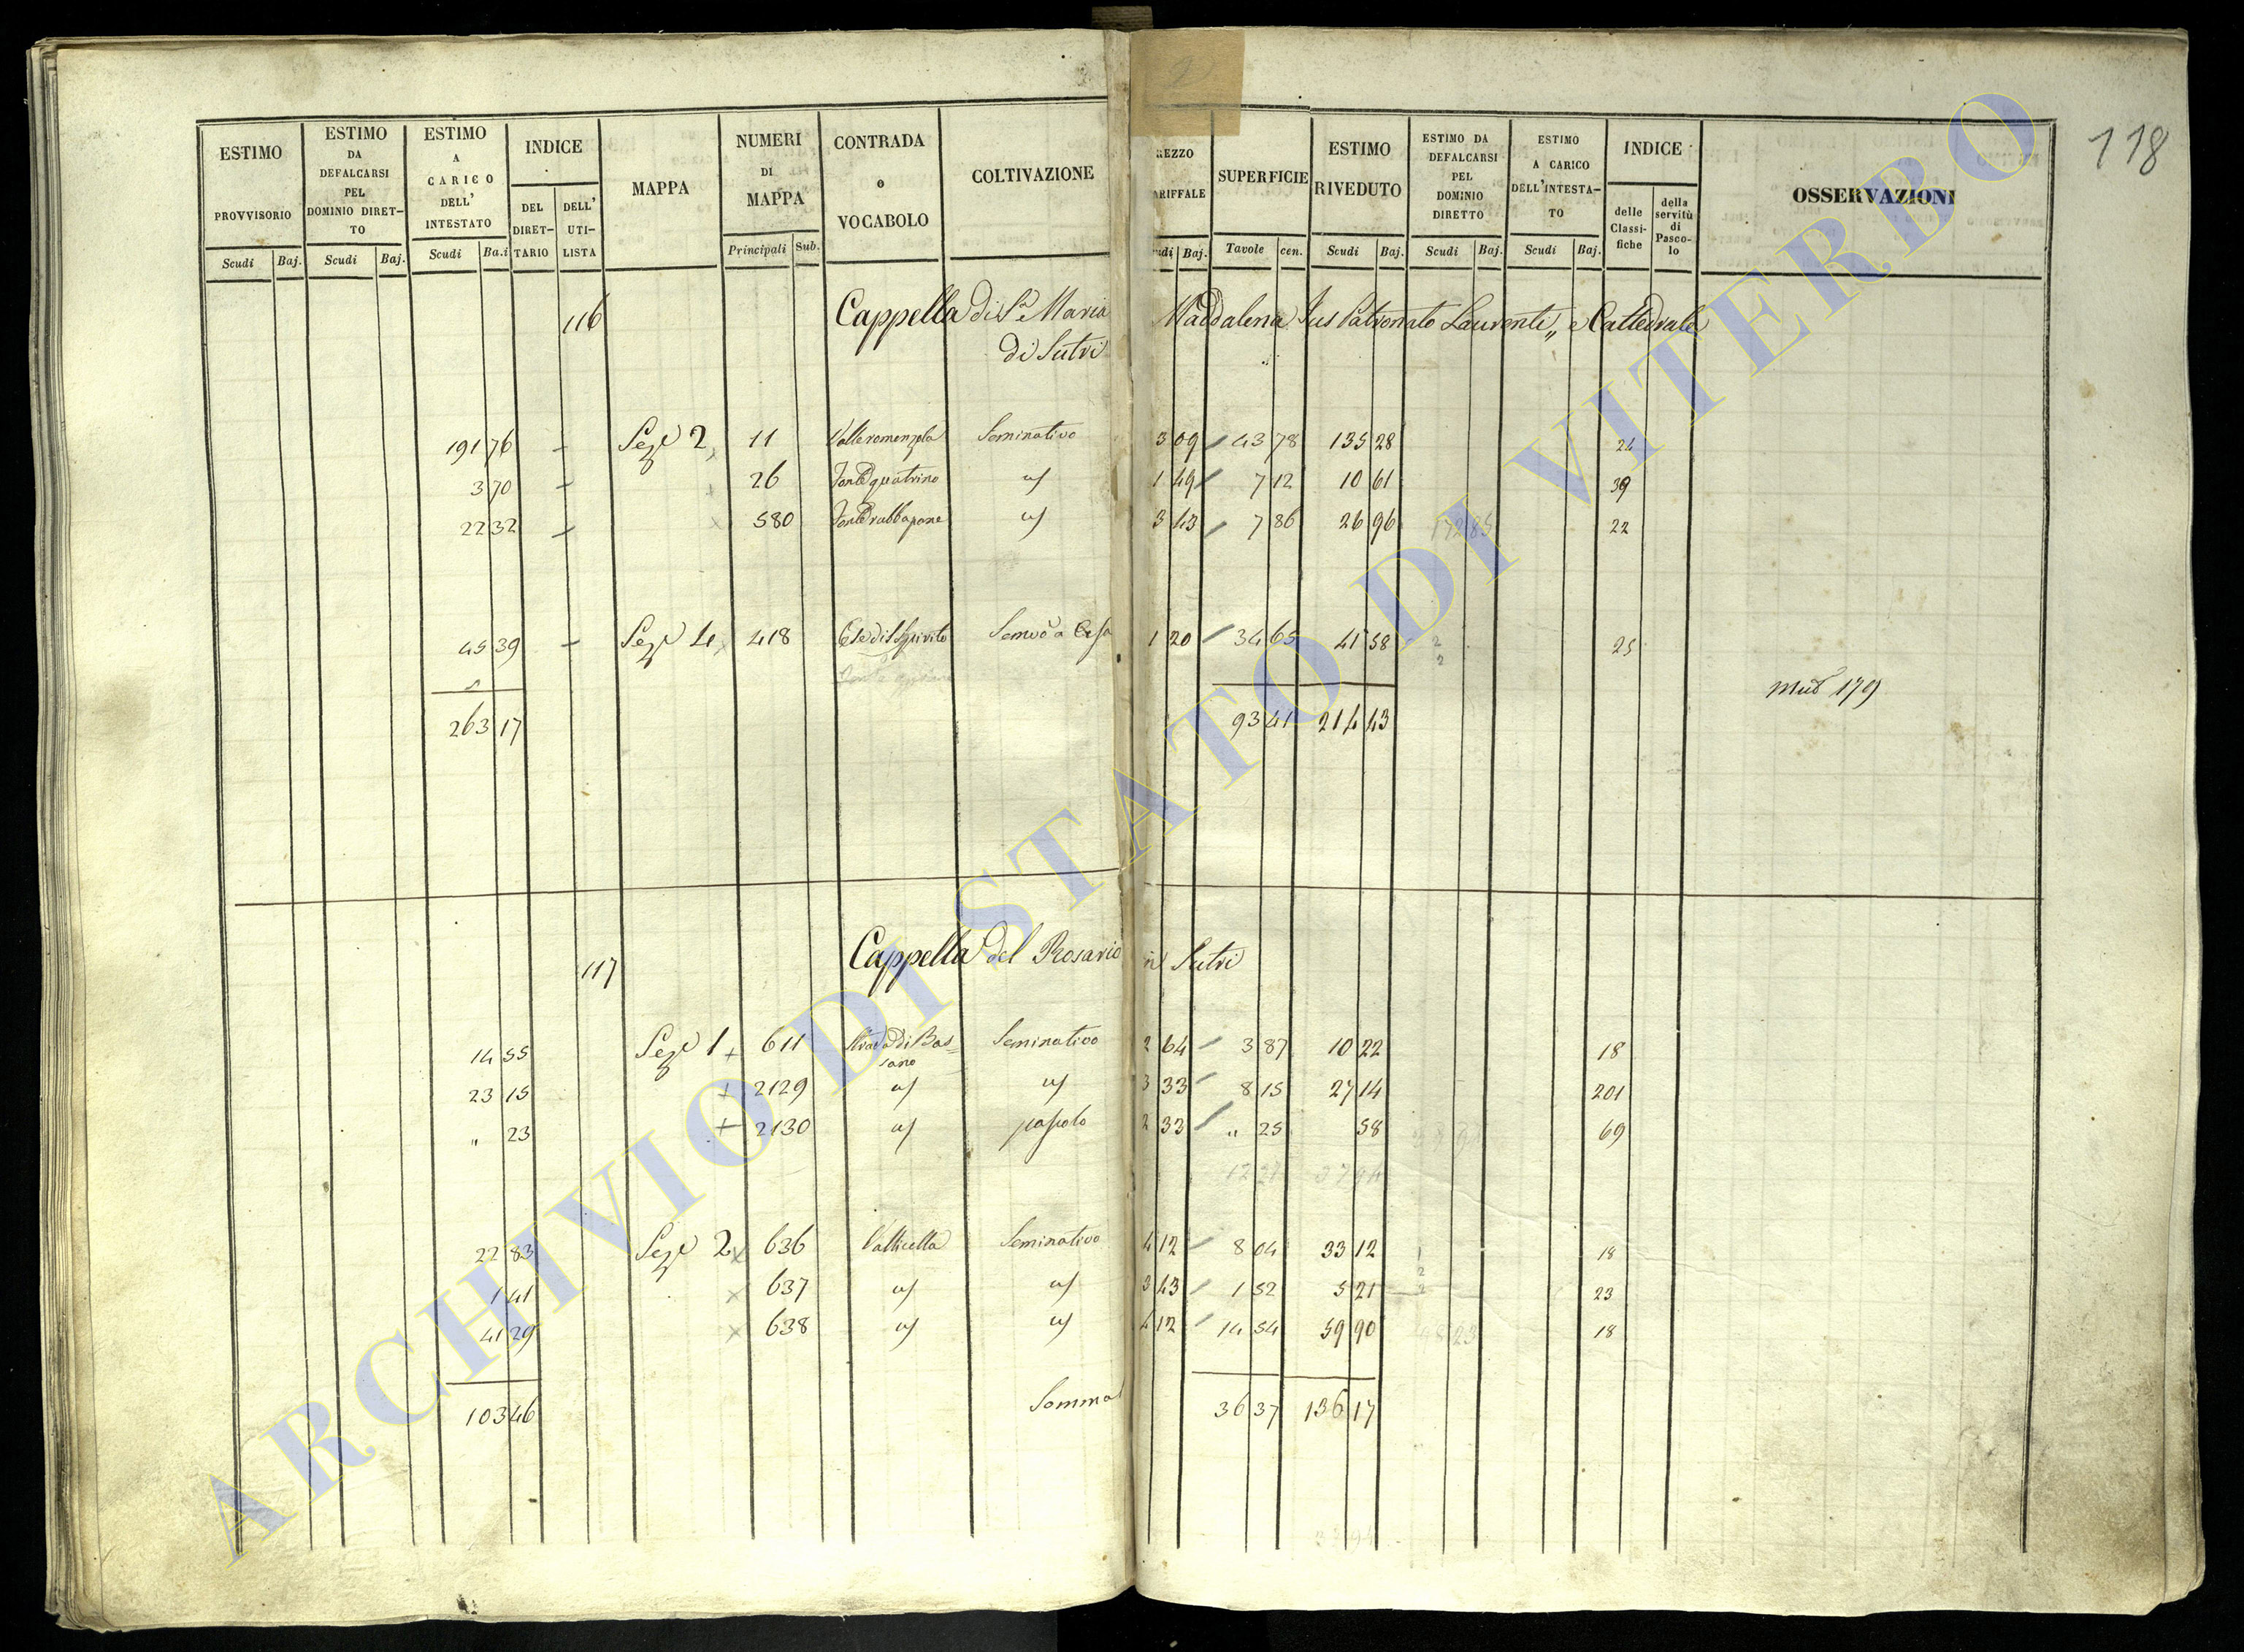 118
2
ESTIMO PROVVISORIO
ESTIMO DA DEFALCARSI PEL DOMINIO DIRET-TO
ESTIMO A CARICO DELL' INTESTATO
INDICE
DEL DIRET-TARIO
DELL' UTI-LISTA
MAPPA
NUMERI DI MAPPA
CONTRADA o VOCABOLO
COLTIVAZIONE
REZZO ARIFFALE
SUPERFICIE
ESTIMO RIVEDUTO
ESTIMO DA DEFALCARSI PEL DOMINIO DIRETTO
ESTIMO A CARICO DELL'INTESTA-TO
INDICE
delle Classi-fiche
della servitù di Pasco-lo
OSSERVAZIONI
Scudi Baj. Scudi Baj. Scudi Ba.i Principali Sub. udi Baj. Tavole cen. Scudi Baj. Scudi Baj. Scudi Baj.
116 Cappella di S.a Maria Maddalena Jus Patronato Laurente,, e Cattedrale
di Sutri
191 76 – Sez.e 2 11 Valleromenzola Seminativo 3 09 43 78 135 28 24
3 70 – 26 Fonte quatrino 1 49 7 12 10 61 39
22 32 – 580 3 43 7 86 26 96 172 85 22
45 39 – Sez.e 4 418 1 20 34 65 41 58 25
Mut 179
263 17 93 41 214 43
117 Cappella del Rosario in Sutri
14 55 Sez.e 1 + 611 Strada di Bas= Seminativo 2 64 3 87 10 22 18
sano
23 15 + 2129 3 33 8 15 27 14 201
" 23 + 2130 pascolo 2 33 " 25 58 69
22 83 Sez.e 2 x 636 Vallicella Seminativo 4 12 8 04 33 12 18
1 41 x 637 3 43 1 52 5 21 23
41 29 x 638 4 12 14 54 59 90 18
103 46 Somma 36 37 136 17
ARCHIVIO DI STATO DI VITERBO